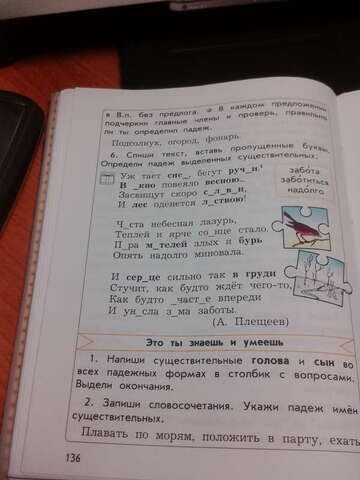 в В.п. без предлога. о В каждом предложении
подчеркни главные члены и проверь, правильно
ли ты определил падеж.
Подсолнух, огород, фонарь.
6. Спиши текст, вставь пропущенные буквы.
Определи падеж выделенных существительных.
Уж тает сне_, бегут руч_и.¹
В _кно повеяло весною..
Засвищут скоро с_л_в_и,
И лес оденется л_ствою!
забота
заботиться
надолго
Ч_ста небесная лазурь,
Теплей и ярче со_нце стало,
П_ра м_телей злых и бурь
Опять надолго миновала.
И сер_це сильно так в груди
Стучит, как будто ждёт чего-то,
Как будто _част_е впереди
И ун_сла з_ма заботы.
(А. Плещеев)
Это ты знаешь и умеешь
1. Напиши существительные голова и сын во
всех падежных формах в столбик с вопросами.
Выдели окончания.
2. Запиши словосочетания. Укажи падеж имён
существительных.
Плавать по морям, положить в парту, ехать
136